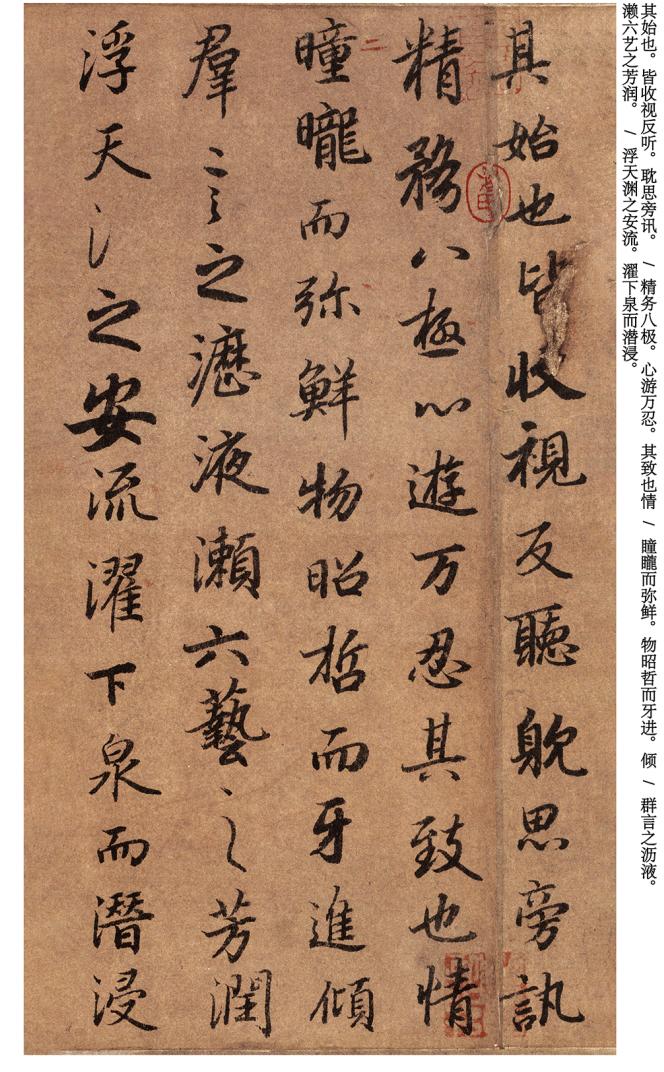 其始也。皆收视反听。耽思旁讯。 / 精务八极。心游万忍。其致也情 / 瞳矓而弥鲜。物昭哲而牙进。倾 / 群言之沥液。
濑六艺之芳润。 / 浮天渊之安流。濯下泉而潜浸。
其始也皆收視反聽躭思旁訊
精務八極心遊万忍其致也情
曈曨而弥鮮物昭哲而牙進傾
羣言之瀝液瀨六藝之芳潤
浮天氵之安流濯下泉而潛浸